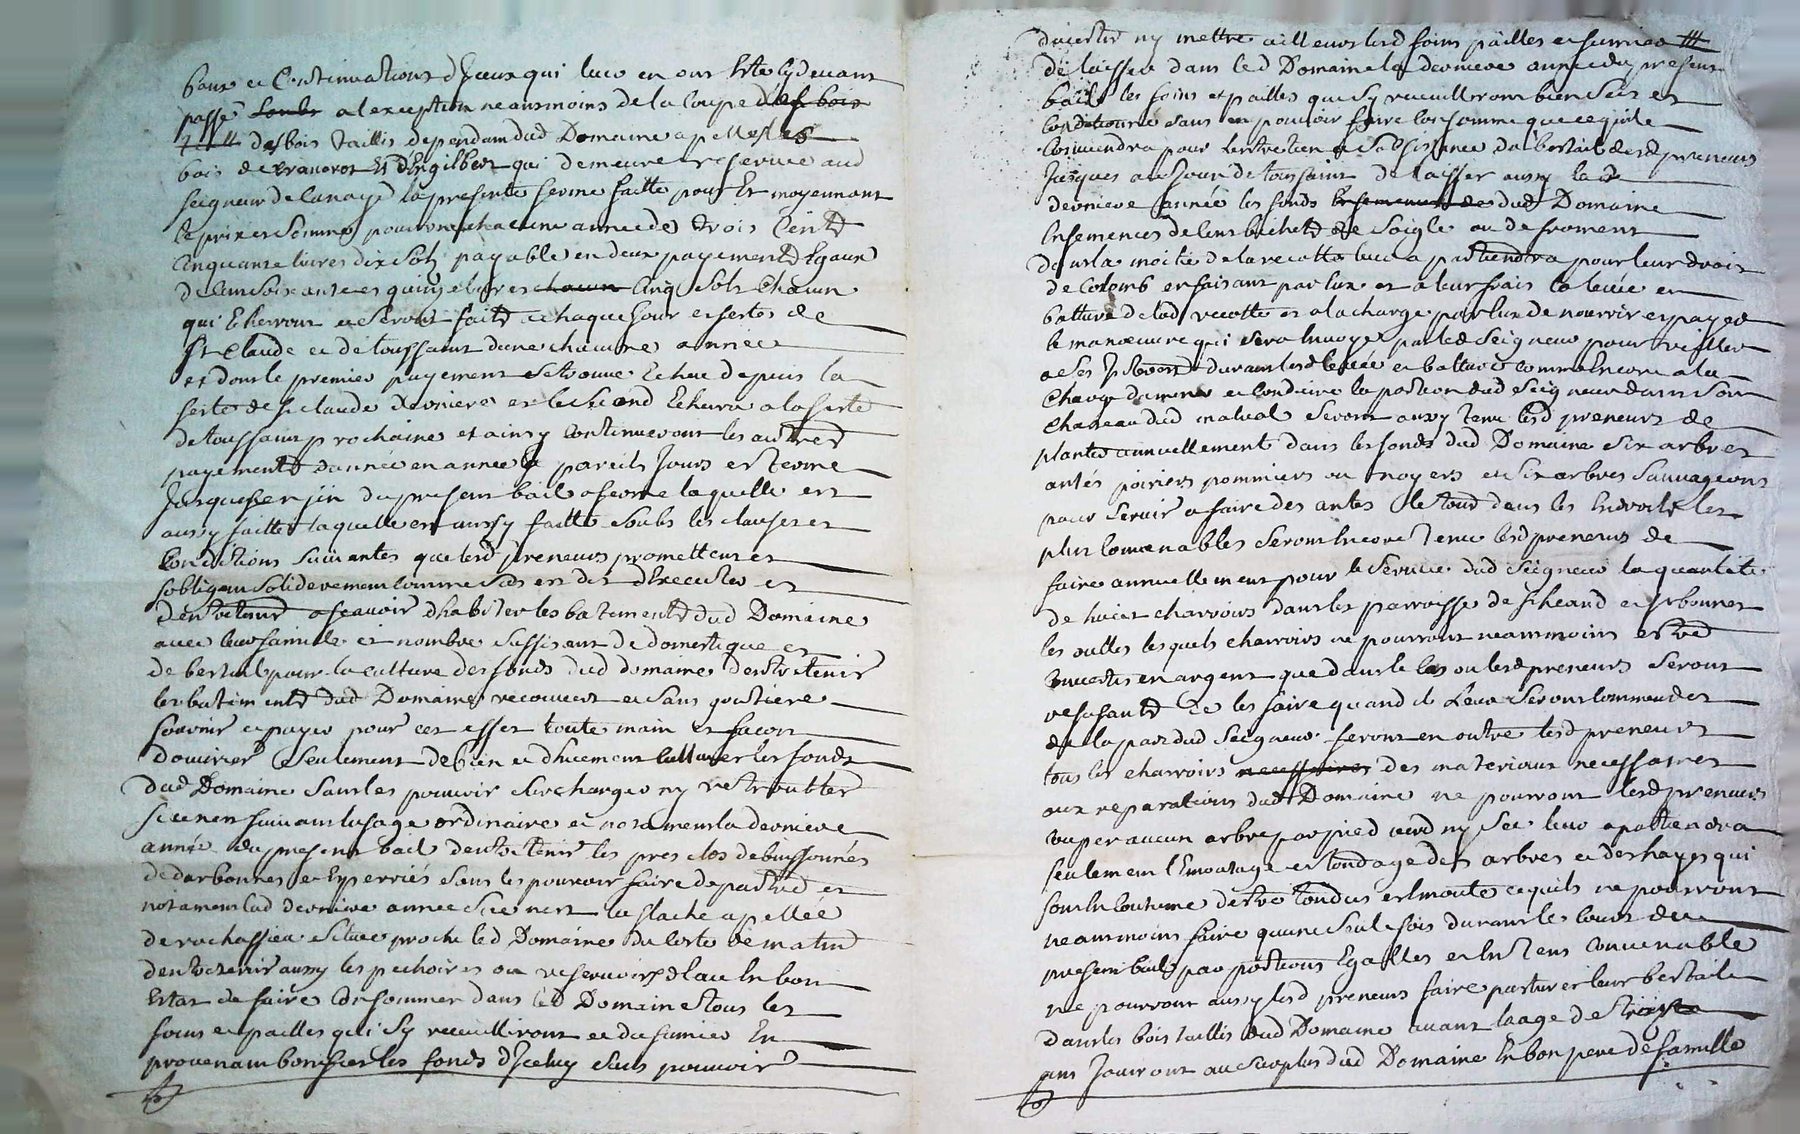 baux et Continuations d'Iceux qui leur en ont Este Cydevant
passé a lexception neansmoins de la Coupe
des bois taillis dependam dud Domaine apellesles
bois de et d'Engilbert qui demeure reservée aud
seigneur de lanage la presente ferme faitte pour Et moyennant
le prix et Somme pour une chacune année de trois Centz
Cinquante livres dix solz payable en deux payementz Egaux
de Cent soixante et quinze livres chacun Cinq Solz Chacun
qui Echerront et Seront faitz a chaque Jour et festes de
St Claude et de toussaint dune chacune année
et dont le premier payement se trouve Echue depuis la
feste de St claude derniere et le second Echerra a la feste
de toussaint prochaine et ainsy Continueront les autres
payementz dannée en année a pareils Jours et terme
Jusques en fin du present bail a ferme laquelle est
aussy faitte laquelle est aussy faitte soubs les clauses et
Conditions suivantes que lesd preneurs promettent et
sobligent solidairement comme sus est dit d'Executer et
dentretenir a scavoir dhabiter les batimentz dud Domaine
avec leur famille et nombre suffisent de domestique et
de bertail pour la culture des fonds dud domaine dentretenir
les batimentz dud Domaine recouvert et sans goutiere
fournir et payer pour cet effet toute main et facon
douvrier seulement de bien et dhuement cultiver les fonds
dud Domaine sans les pouvoir surcharger ny retroubler
si ce nest suivant lusage ordinaire et notament la derniere
année du present bail dentretenir les pres clos de buissonnés
dedarbonnes et Esperriés sans les pouvoir faire depaitre et
notament lad derniere année si ce nest la flache apellée
de rochassieu situee proche led Domaine du Coste de matin
dentretenir aussy les pechoires ou reservoirs d'eau En bon
Estat de faire Consommer dans led Domaine tous les
foins et pailles qui sy recueilliront et du fumier En
provenant bonifier les fonds d'Iceluy sans pouvoir
divertir ny mettre ailleurs lesd foins pailles et fumier
de laisser dans led Domaine la derniere année du present
bail les foins et pailles que sy recueilliront bien secs et
Conditionné sans en pouvoir faire Consomme que ce qu'ile
Conviendra pour lentretien et Subsistance du bertail desd preneurs
Jusques au Jour de toussaint de laisser aussy lad
derniere année les fonds Ensemencés de dud Domaine
Ensemences de Cent bichetz de Soigle ou de froment
dont la moitié de la recolte leur apartiendra pour leur droit
de Colomb en faisant par Eux et a leur frais la levée et
batture de lad recolte et a la charge par Eux de nourrir et payer
le manoeuvre qui sera Envoyé par led Seigneur pour veiller
a ses Interest durant lesd levée et batture comme Encore a la
Charge damener et Conduire la portion dud Seigneur dans son
Chateau dud Seront aussy tenu lesd preneurs de
planter annuellement dans les fonds dud Domaine Six arbres
antés poiriers pommiers ou noyers et Six arbres Sauvageons
pour Servir a faire des antes le tout dans les Endroits les
plus Convenables Seront Encore tenu lesd preneurs de
faire annuellement pour le Service dud Seigneur la quantité
de huict charroirs dans les parroisse de et St bonnet
les oulles lesquels charroirs ne pourront neammoins estre
Convertis en argent que dans le Cas ou lesd preneurs seront
refusantz de les faire quand ils Leur Seront Commendes
de la part dud Seigneur feront en outre lesd preneurs
tous les charroirs necessaires des materiaux necessaires
aux reparations dud Domaine ne pourront lesd preneurs
Couper aucun arbre par pied verd ny Sec leur apartiendra
seulement l'Emoutage et tondage des arbres et des hayes qui
sont En Coutume destre tondus et Emoute ce quils ne pourront
neammoins faire quune Seule fois durant le Cours du
present bail par portions Egalles et En tems Convenable
ne pourront aussy lesd preneurs faire pasturer leur bertail
dans les bois taillis dud Domaine avant laage de trois
ans Jouiront au surplus dud Domaine En bon pere de famille